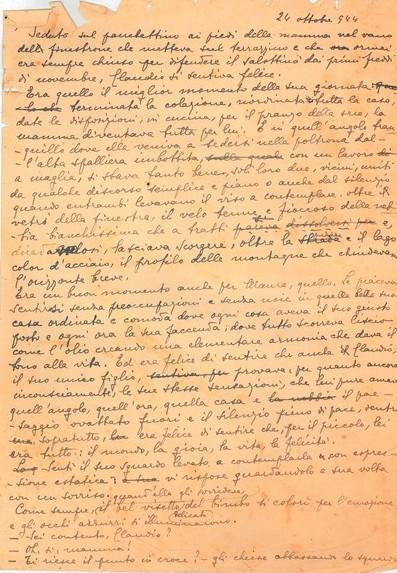 24 ottobre 944
Seduto sul panchettino ai piedi della mamma nel vano
della finestrone che metteva sul terrazzino e che ormai
era sempre chiuso per difendere il salottino dai primi freddi
di novembre, Claudio si sentiva felice.
Era quello il miglior momento della sua giornata
terminata la colazione, riordinata tutta la casa,
date le disposizioni, in cucina, per il pranzo della sera, la
mamma diventava tutta per lui. E in quell'angolo tran
quillo dove ella veniva a sedersi nella poltrona dal-
l'alta spalliera imbottita, sulla quale con un lavoro
a maglia, si stava tanto bene, soli loro due, vicini, uniti
da qualche discorso semplice e piano o anche dal silenzio
quando entrambi levavano il viso a contemplare, oltre i
vetri della finestra, il velo tenue e fioccoso della neb-
bia bianchissima che a tratti pareva dissolversi e,
lasciava scorgere, oltre la strada e il lago
color d'acciaio, il profilo delle montagne che chiudevano
l'orizzonte breve.
Era un buon momento anche per Maura, quello. Le piaceva
sentirsi senza preoccupazioni e senza noie in quella bella sua
casa ordinata e comoda dove ogni cosa aveva il suo giusto
posto e ogni ora la sua faccenda; dove tutto scorreva liscio
come l'olio creando una elementare armonia che dava il
tono alla vita. Ed era felice di sentire che anche il Claudio,
il suo unico figlio, sentiva, per provava, per quanto ancora
inconsciamente, le sue stesse sensazioni, che lui pure amava
quell'angolo, quell'ora, quella casa e la nebbia il pae-
saggio ovattato fuori e il silenzio pieno di pace, dentro
sopratutto, era felice di sentire che, per il piccolo, lei
era tutto: il mondo, la gioia, la vita, la felicità.
Sentì il suo sguardo levato a contemplarla, con espres-
sione estatica e vi rispose guardandolo a sua volta
con un sorriso. quand'ella gli sorrideva,
Come sempre, il bel visetto del bimbo si colorì per l'emozione
e gli occhi azzurri si illuminarono.
- Sei contento, Claudio?
- Oh, sì, mamma!
- Ti riesce il punto in croce? - gli chiese abbassando lo sguardo